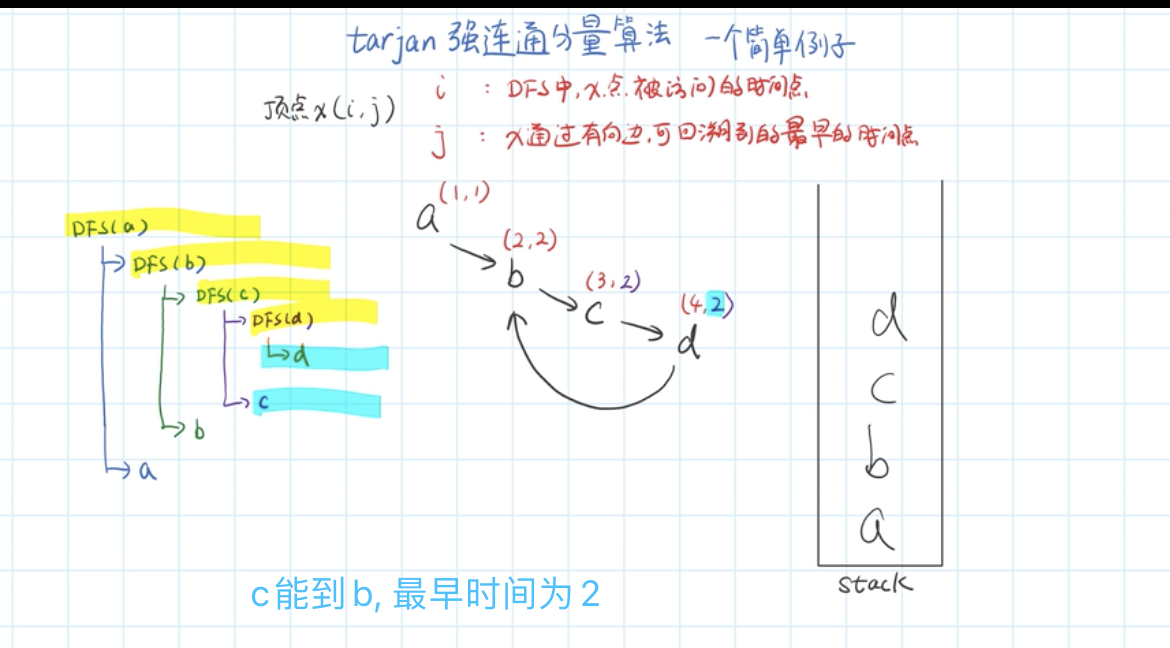 tarjan 强连通分量算法 一个简单例子
顶点x(i,j)
i : DFS中,x点被访问的时间点
j : x通过有向边,可回溯到的最早的时间点
DFS(a)
DFS(b)
DFS(c)
DFS(d)
d
c
b
a
a (1,1)
b (2,2)
c (3,2)
d (4,2)
d
c
b
a
stack
c能到b, 最早时间为2